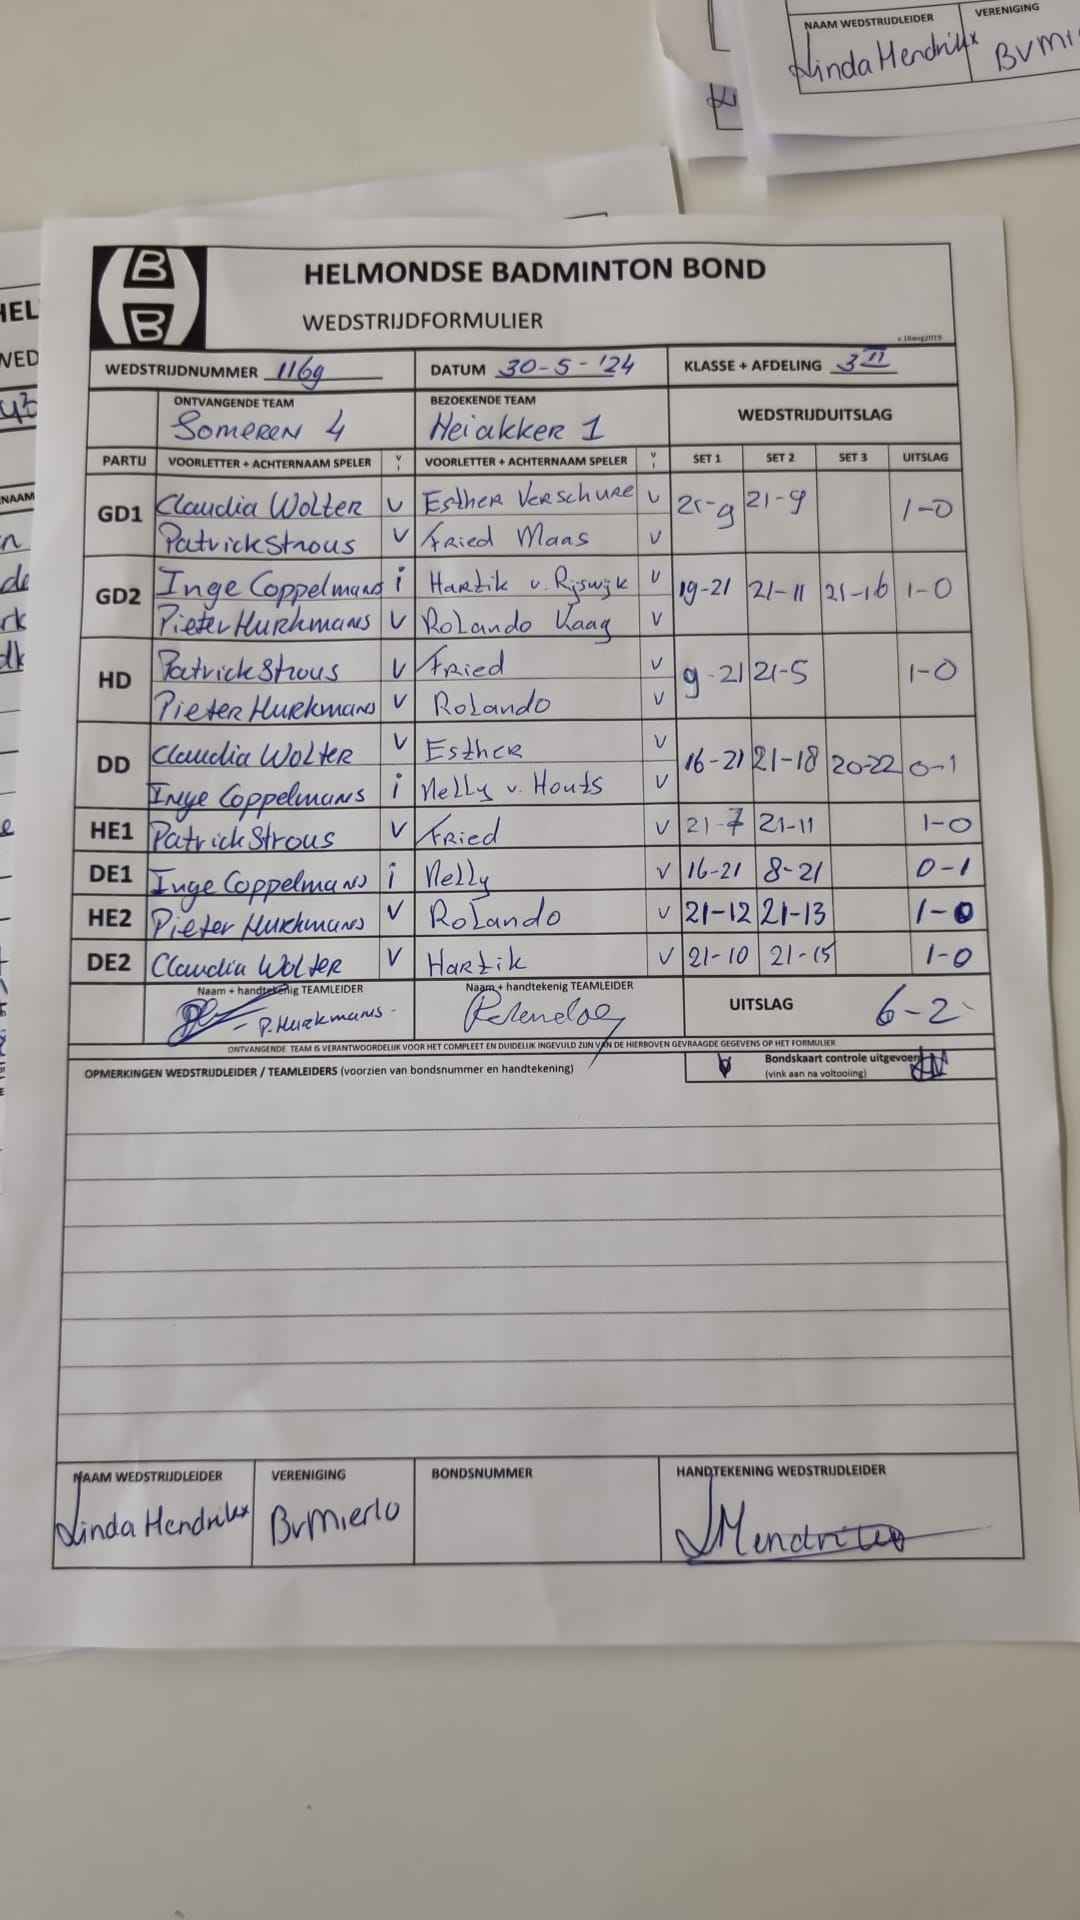 NAAM WEDSTRIJDLEIDER VERENIGING
Linda Hendrikx BVMi
HELMONDSE BADMINTON BOND
WEDSTRIJDFORMULIER
v.18aug2019
WEDSTRIJDNUMMER 1169 DATUM 30-5-'24 KLASSE + AFDELING 3 II
ONTVANGENDE TEAM BEZOEKENDE TEAM WEDSTRIJDUITSLAG
SOMEREN 4 Heiakker 1
PARTIJ VOORLETTER + ACHTERNAAM SPELER V I VOORLETTER + ACHTERNAAM SPELER V I SET 1 SET 2 SET 3 UITSLAG
GD1 Claudia Wolter V Esther Verschure V 21-9 21-9 1-0
Patrick Strous V Fried Maas V
GD2 Inge Coppelmans i Hartik v. Rijswijk V 19-21 21-11 21-16 1-0
Pieter Hurkmans V Rolando Kaag V
HD Patrick Strous V Fried V 9-21 21-5 1-0
Pieter Hurkmans V Rolando V
DD Claudia Wolter V Esther V 16-21 21-18 20-22 0-1
Inge Coppelmans i Nelly v. Houts V
HE1 Patrick Strous V Fried V 21-7 21-11 1-0
DE1 Inge Coppelmans i Nelly V 16-21 8-21 0-1
HE2 Pieter Hurkmans V Rolando V 21-12 21-13 1-0
DE2 Claudia Wolter V Hartik V 21-10 21-15 1-0
Naam + handtekenig TEAMLEIDER Naam + handtekenig TEAMLEIDER UITSLAG 6-2
- P. Hurkmans -
ONTVANGENDE TEAM IS VERANTWOORDELIJK VOOR HET COMPLEET EN DUIDELIJK INGEVULD ZIJN VAN DE HIERBOVEN GEVRAAGDE GEGEVENS OP HET FORMULIER
OPMERKINGEN WEDSTRIJDLEIDER / TEAMLEIDERS (voorzien van bondsnummer en handtekening) V Bondskaart controle uitgevoerd
(vink aan na voltooiing)
NAAM WEDSTRIJDLEIDER VERENIGING BONDSNUMMER HANDTEKENING WEDSTRIJDLEIDER
Linda Hendrikx BVMierlo